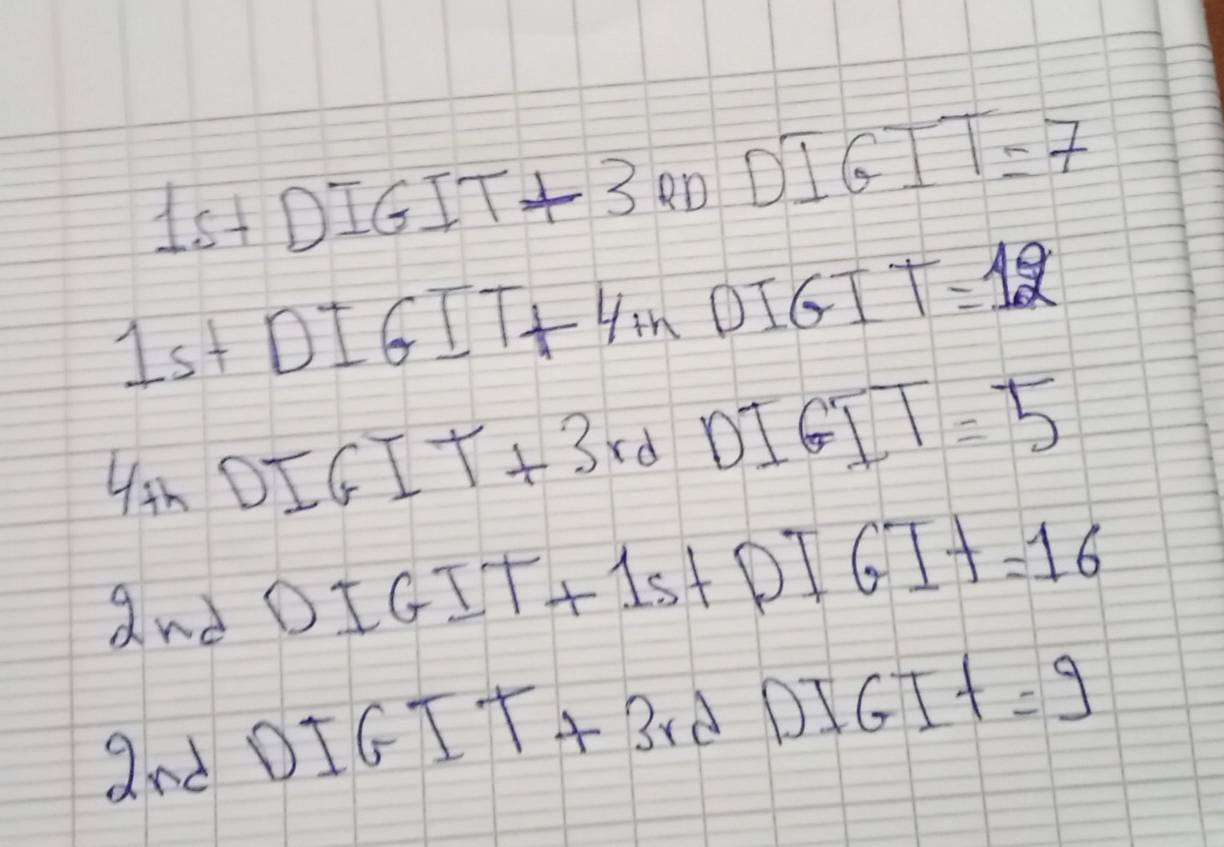 1st DIGIT + 3RD DIGIT = 7
1st DIGIT + 4th DIGIT = 12
4th DIGIT + 3rd DIGIT = 5
2nd DIGIT + 1st DIGIt = 16
2nd DIGIT + 3rd DIGIt = 9